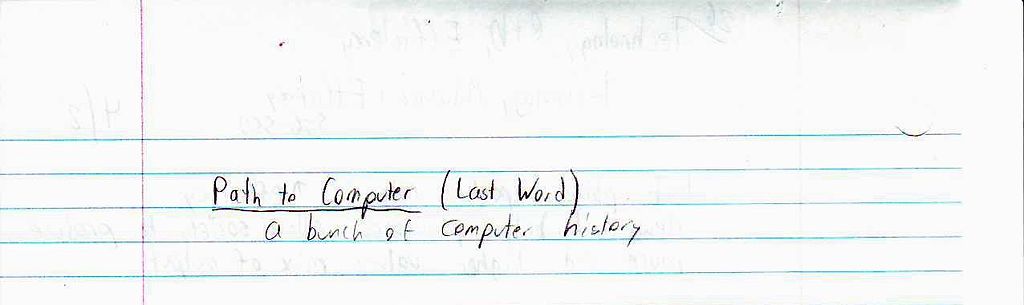 Path to Computer (Last Word)
a bunch of computer history